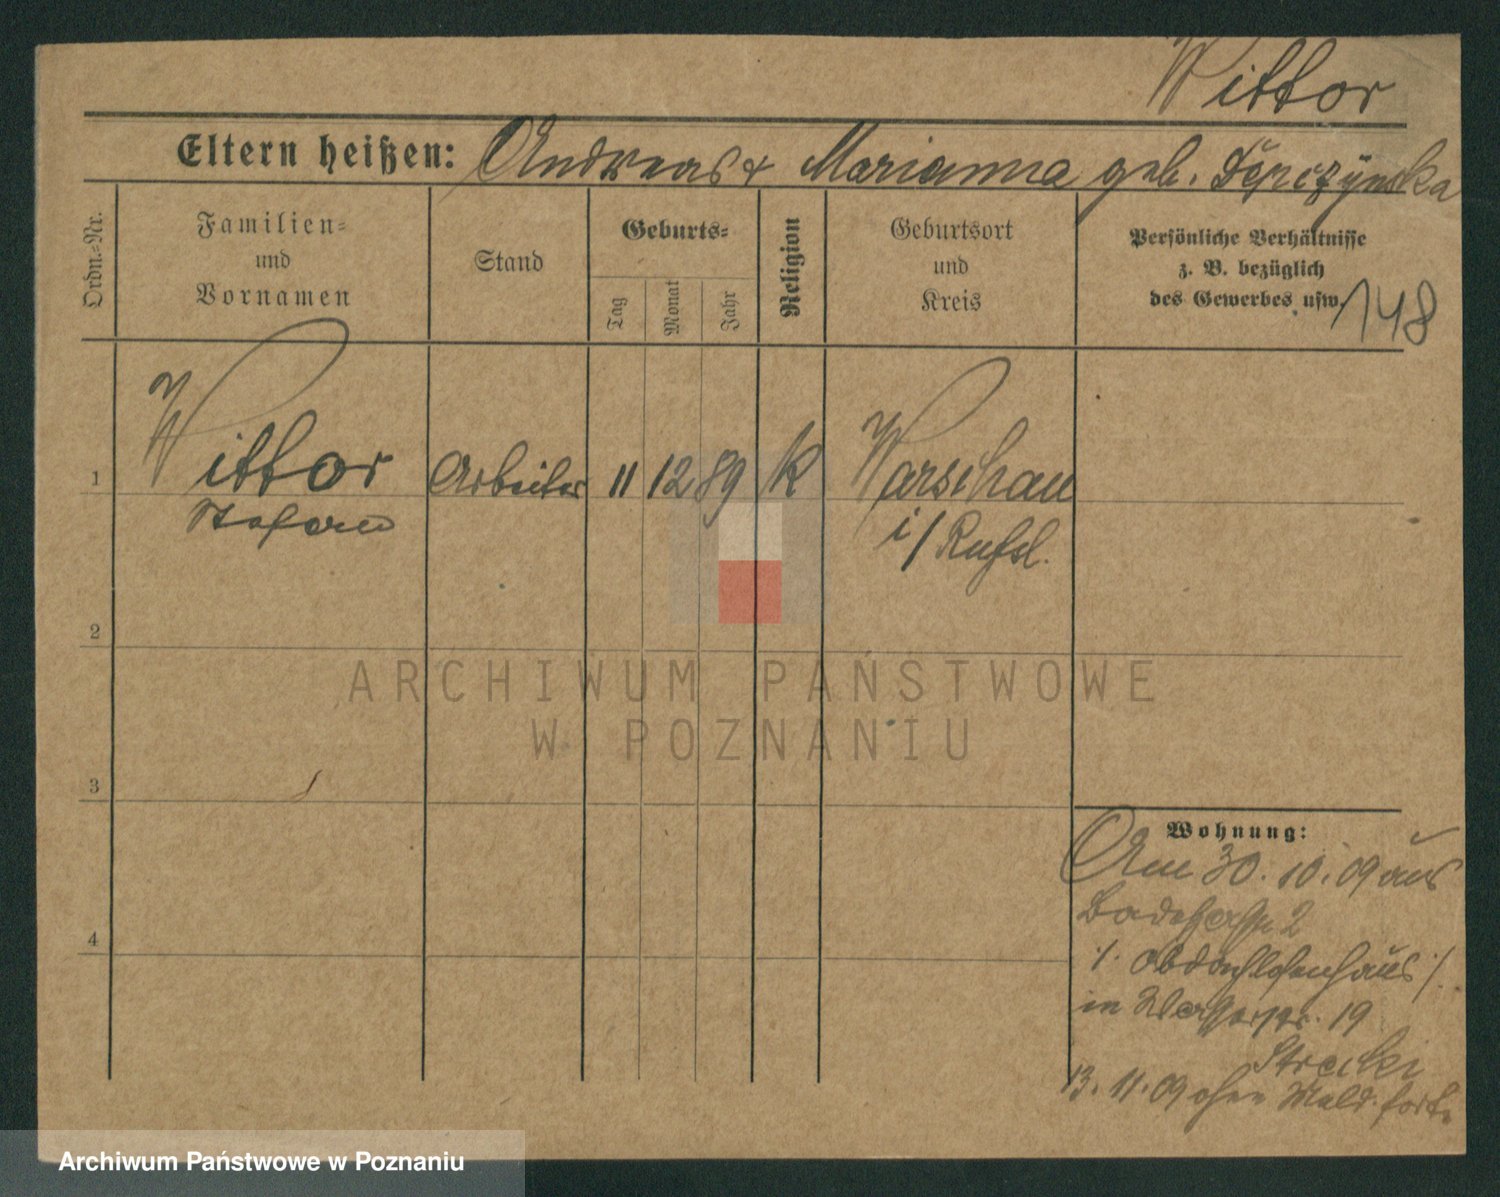 Wittor
Eltern heißen: Andreas & Marianna geb.
Ordn.-Nr.
Familien=
und
Vornamen
Stand
Geburts=
Tag
Monat
Jahr
Religion
Geburtsort
und
Kreis
Persönliche Verhältnisse
z. B. bezüglich
des Gewerbes usw.
148
1
Wittor
Stefan
Arbeiter
11
12
89
K
Warschau
i/Rußl.
2
3
4
Wohnung:
Am 30.10.09 aus
2
/. Obdachlosenhaus ./.
in Wasserstr. 19
13.11.09 ohne Meld. fort.
ARCHIWUM PAŃSTWOWE
W POZNANIU
Archiwum Państwowe w Poznaniu